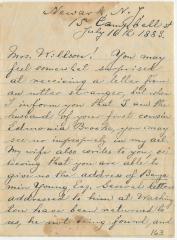 Newark, N. J.
15 Campbell St
July 16th 1883.
Mrs. Willson! You may
feel somewhat surprised
at receiving a letter from
an utter stranger, but when
I inform you that I am the
husband of your first cousin
Edmonia Brooks, you may
see no impropriety in my act.
My wife also writes to you, be-
lieving that you are able to
give me the address of Benja
min Young, Esq. Several letters
addressed to him at Washing
ton have been returned to
us, he not being found and
163